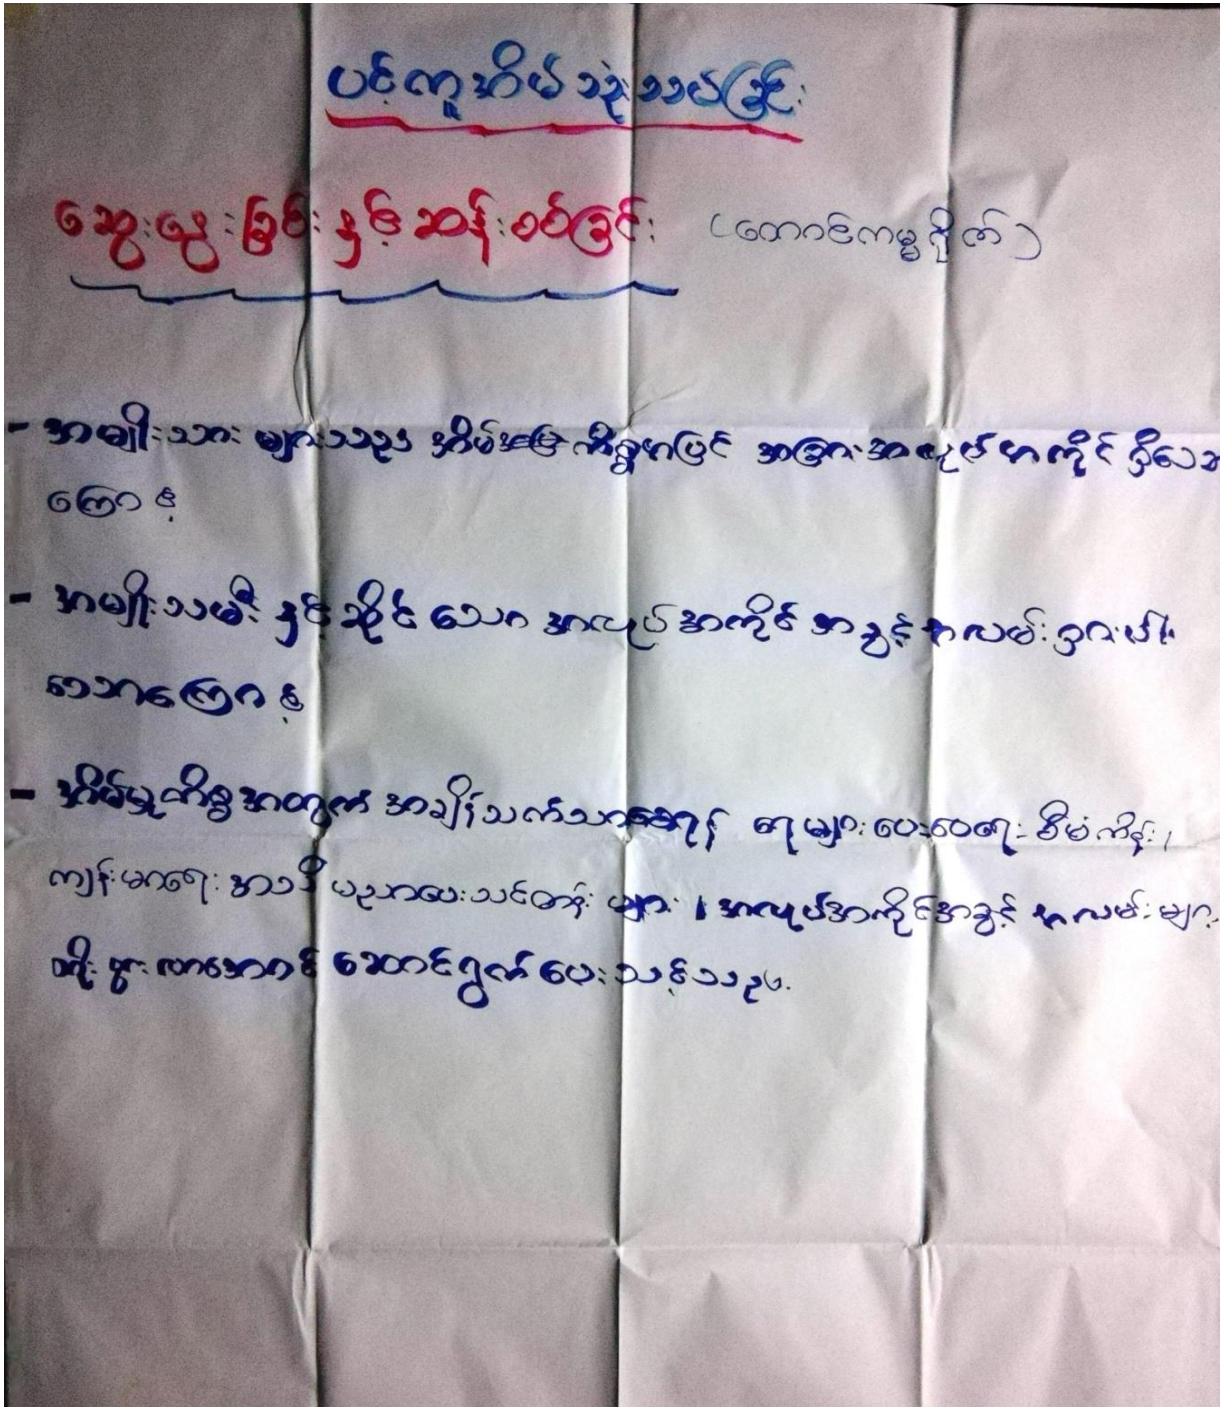 ပင့်ကူအိမ်သုံးသပ်ခြင်း
ဆွေးနွေးခြင်းနှင့် ဆန်းစစ်ခြင်း (တောင်ကမ္ဗဠိုက်)
- အမျိုးသားများသည် အိမ်အမြဲကိစ္စအပြင် အခြားအလုပ်အကိုင် ရှိသော
ကြောင့်
- အမျိုးသမီးနှင့်ဆိုင်သော အလုပ်အကိုင်အခွင့်အလမ်းရှားပါး
သောကြောင့်
- အိမ်မှုကိစ္စအတွက် အချိန်သက်သာစေရန် ရေများပေးဝေရေး စီမံကိန်း၊
ကျန်းမာရေး အသိပညာပေးသင်တန်းများ၊ အလုပ်အကိုင်အခွင့်အလမ်းများ
တိုးပွားလာအောင် ဆောင်ရွက်ပေးသင့်သည်။